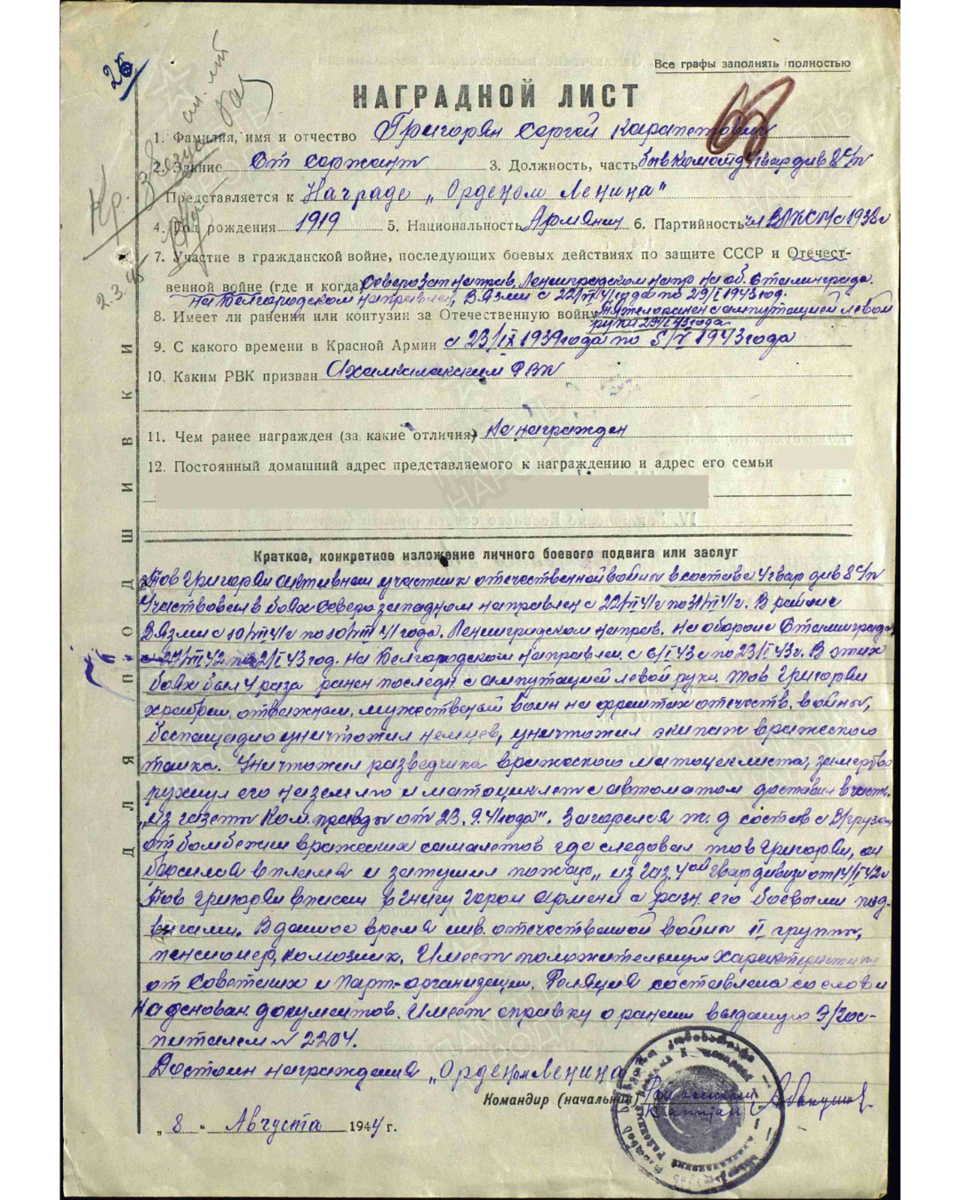 26
Кр. Звезду
2.3.45
Все графы заполнять полностью
НАГРАДНОЙ ЛИСТ
1. Фамилия, имя и отчество Григорян Сергей Карапетович
2. Звание Ст сержант 3. Должность, часть быв Ком отд 4 гвар див 8 с/п
Представляется к Награде „Орденом Ленина“
4. Год рождения 1919 5. Национальность Армянин 6. Партийность чл ВЛКСМ с 1938г
7. Участие в гражданской войне, последующих боевых действиях по защите СССР и Отечест-
венной войне (где и когда) Северозап направ. Ленинградском напр на об. Сталинграда.
на Белгородском направлен, Вязми с 22/VI 41 года по 23/I 1943 год.
8. Имеет ли ранения или контузии за Отечественную войну Тяжелоранен с ампутацией левой
рука 23/I 43 года
9. С какого времени в Красной Армии с 23/IX 1939 года по 5/V 1943 года
10. Каким РВК призван Ахалкалакским РВК
11. Чем ранее награжден (за какие отличия) Не награжден
12. Постоянный домашний адрес представляемого к награждению и адрес его семьи
Краткое, конкретное изложение личного боевого подвига или заслуг
Тов Григорян активный участник отечественной войны в составе 4 гвар див 8 с/п
Участвовал в боях Северо западном направлен с 22/VI 41г по 31/VII 41г. В районе
Вязми с 10/VIII 41г по 10/VIII 41 года. Ленинградском направ. на обороне Сталинграда
42 по 2/I 43 год. На Белгородском направлен. с 6/I 43 г по 23/I 43г. В этих
боях был 4 раза ранен последн с ампутацией левой руки. Тов Григорян
храбрый, отважный, мужественый воин на фронтах отечеств. войны,
беспощадно уничтожил немцев, уничтожил экипаж вражеского
танка. Уничтожил разведчика вражеского матоциклиста, замертво
рухнул его на землю и матоциклет с автоматом доставил в часть.
„из газеты Ком. правды от 23.9.41 года“. Загорелся ж.д состав с В/грузом
от бомбежки вражеских самалетов где следовал тов Григорян, он
бросился в пламя и затушил пожар„ из газ. 4ой гвар дивизи от 14/I 42г
Тов Григорян вписан в книгу герои Армени с разн его боевыми под-
вигами. В данное время инв. отечественной войны II группы,
пенсионер, колхозник. Имеет положительную характеристику
от Советских и парт-организации. Реляция составлена со слов и
На основан. документов. Имеет справку о ранени выданую Э/гос-
питалем № 2204.
Достоин награждения „Орденом Ленина
Командир (начальник)
„8“ Августа 1944 г.
ДЛЯ ПОДШИВКИ